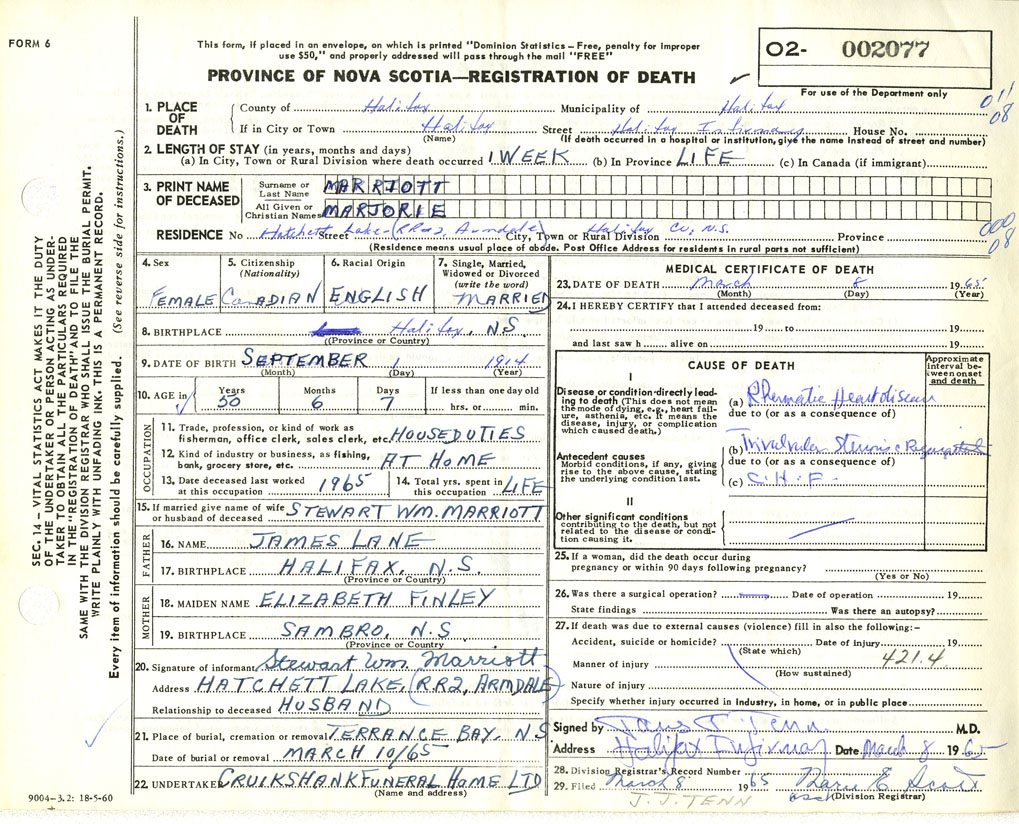 FORM 6
This form, if placed in an envelope, on which is printed "Dominion Statistics – Free, penalty for improper
use $50," and properly addressed will pass through the mail "FREE"
PROVINCE OF NOVA SCOTIA—REGISTRATION OF DEATH
O2- 002077
For use of the Department only
011
08
1. PLACE OF DEATH
County of Halifax Municipality of Halifax
If in City or Town Halifax Street Halifax Infirmary House No.
(Name) (If death occurred in a hospital or institution, give the name instead of street and number)
2. LENGTH OF STAY (in years, months and days)
(a) In City, Town or Rural Division where death occurred 1 WEEK (b) In Province LIFE (c) In Canada (if immigrant)
3. PRINT NAME OF DECEASED
Surname or Last Name MARRIOTT
All Given or Christian Names MARJORIE
RESIDENCE No Hatchett Street Lake-(RR2, Armdale) City, Town or Rural Division Halifax Co, N.S. Province
(Residence means usual place of abode. Post Office Address for residents in rural parts not sufficient)
000
08
4. Sex FEMALE
5. Citizenship (Nationality) CANADIAN
6. Racial Origin ENGLISH
7. Single, Married, Widowed or Divorced (write the word) MARRIED
8. BIRTHPLACE Halifax, NS
(Province or Country)
9. DATE OF BIRTH SEPTEMBER 1 1914
(Month) (Day) (Year)
10. AGE in Years 50 Months 6 Days 7 If less than one day old hrs. or min.
OCCUPATION
11. Trade, profession, or kind of work as fisherman, office clerk, sales clerk, etc. HOUSEDUTIES
12. Kind of industry or business, as fishing, bank, grocery store, etc. AT HOME
13. Date deceased last worked at this occupation 1965
14. Total yrs. spent in this occupation LIFE
15. If married give name of wife or husband of deceased STEWART WM. MARRIOTT
FATHER
16. NAME JAMES LANE
17. BIRTHPLACE HALIFAX, N.S.
(Province or Country)
MOTHER
18. MAIDEN NAME ELIZABETH FINLEY
19. BIRTHPLACE SAMBRO, N.S
(Province or Country)
20. Signature of informant Stewart Wm. Marriott
Address HATCHETT LAKE, (RR2, ARMDALE)
Relationship to deceased HUSBAND
21. Place of burial, cremation or removal TERRANCE BAY, NS
Date of burial or removal MARCH 10/65
22. UNDERTAKER CRUIKSHANK FUNERAL HOME LTD
(Name and address)
MEDICAL CERTIFICATE OF DEATH
23. DATE OF DEATH March 8 1965
(Month) (Day) (Year)
24. I HEREBY CERTIFY that I attended deceased from:
19 to 19
and last saw h alive on 19
CAUSE OF DEATH
Approximate interval between onset and death
I
Disease or condition directly leading to death (This does not mean the mode of dying, e.g., heart failure, asthenia, etc. It means the disease, injury, or complication which caused death.)
(a) Rheumatic Heart disease
due to (or as a consequence of)
Antecedent causes
Morbid conditions, if any, giving rise to the above cause, stating the underlying condition last.
(b) Trivalvular Stenosis Regurgitation
due to (or as a consequence of)
(c) C.H.F.
II
Other significant conditions contributing to the death, but not related to the disease or condition causing it.
25. If a woman, did the death occur during pregnancy or within 90 days following pregnancy?
(Yes or No)
26. Was there a surgical operation? Date of operation 19
State findings Was there an autopsy?
27. If death was due to external causes (violence) fill in also the following:–
Accident, suicide or homicide? Date of injury 19
(State which) 421.4
Manner of injury
(How sustained)
Nature of injury
Specify whether injury occurred in industry, in home, or in public place
Signed by M.D.
Address Halifax Infirmary Date March 8 1965
28. Division Registrar's Record Number
29. Filed March 8 1965 Marie E Scott
(Division Registrar)
J.J. TENN
9004–3.2: 18-5-60
SEC. 14 – VITAL STATISTICS ACT MAKES IT THE DUTY
OF THE UNDERTAKER OR PERSON ACTING AS UNDER-
TAKER TO OBTAIN ALL THE PARTICULARS REQUIRED
IN THE "REGISTRATION OF DEATH" AND TO FILE THE
SAME WITH THE DIVISION REGISTRAR WHO SHALL ISSUE THE BURIAL PERMIT.
WRITE PLAINLY WITH UNFADING INK. THIS IS A PERMANENT RECORD.
Every item of information should be carefully supplied. (See reverse side for instructions.)